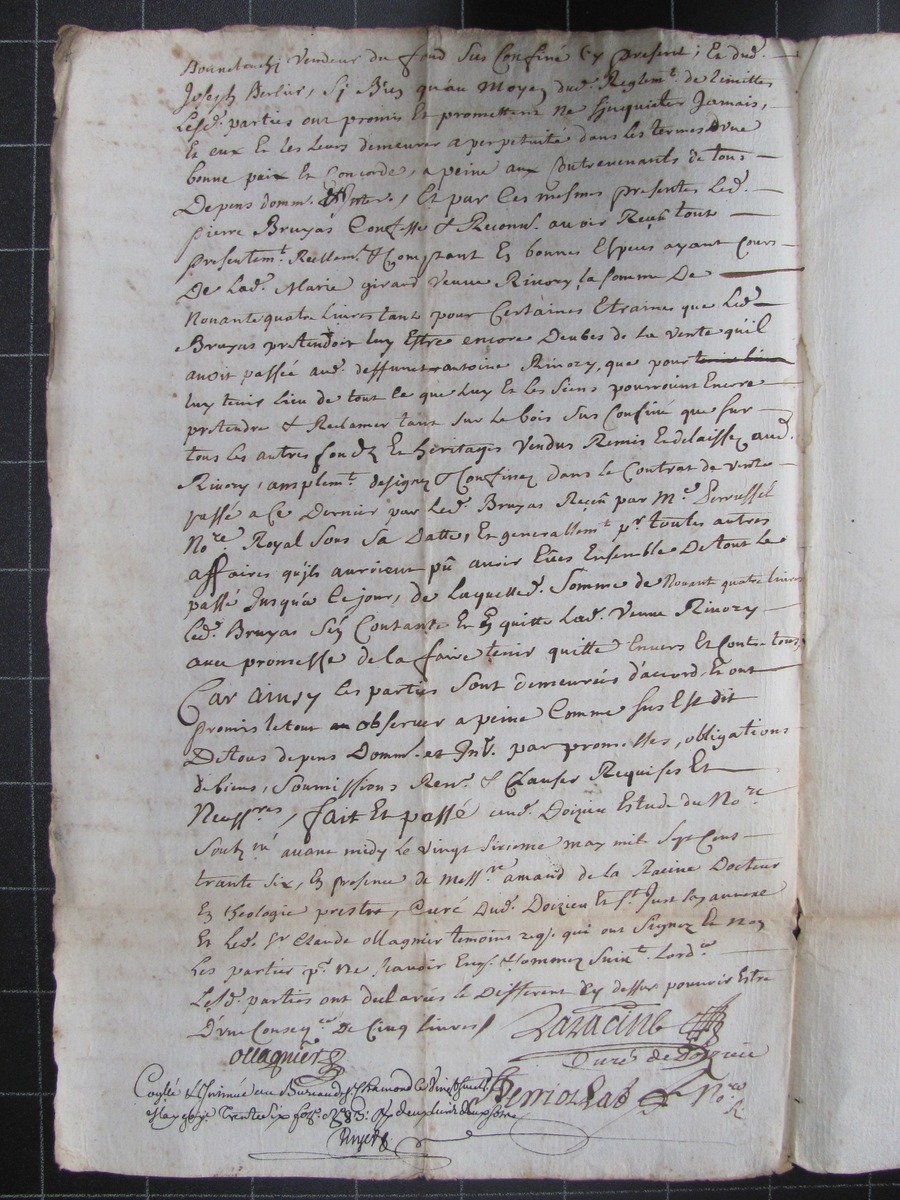 vendeur du fond sus Confiné Cy present; Et dud.
Joseph Berlier, Si Bien qu'au Moyen dud. Reglemt. de limittes
Lesd. parties ont promis Et promettent Ne s'jnquieter Jamais,
Et eux Et les Leurs demeurer a perpetuité dans les termes d'vne
bonne paix Et Concorde, a peine aux Contrevenants de tous
Depens domm. & Inter., Et par Ces mesmes presentes Led.
pierre Bruyas Confesse & Reconn. avoir Reçeu tout
presentemt. Reellemt. & Comptant En bonnes Especes ayant Cours
De Lad. Marie girard Veuve Rivory la somme De
Nonante quatre Livres tant pour Certaines Etraines que Led.
Bruyas pretendoit luy Estre encore Deubes de la Vente qu'il
avoit passée aud. deffunct antoine Rivory, que pour
luy tenir lieu de tout Ce que Luy Et les Siens pourroient Encore
pretendre & Reclamer tant sur Le bois sus Confiné que sur
tous les autres fondz Et heritages Vendus Remis Et delaissez aud.
Rivory, amplemt. designez & Confinez dans le Contrat de vente
passé a Ce Dernier par Led. Bruyas Reçeu par Me.
Nore. Royal Sous Sa Datte, Et generallemt. pr. toutes autres
affaires qu'ils auroient pû avoir Eües Ensemble De tout Le
passé Jusqu'a Ce jour, de laquelled. Somme de Nonant quatre livres
Led. Bruyas S'en Contante Et En quitte Lad. Veuve Rivory
avec promesse de la faire tenir quitte Envers Et Contre tous,
Car ainsy les parties Sont demeurées d'accord, Et ont
promis le tout observer a peine Comme sus Est dit
De tous depens Domm. et Int. par promesses, obligations
de biens, Soumissions Ren. & Clauses Requises Et
Necessres, fait Et passé aud. Doizieu Estude du Nore.
Soubz né avant midy Le Vingt Sixieme may mil Sept Cens
trante Six, En presence de Messre. amand de la Racine Docteur
En theologie prestre, Curé Dud. Doizieu Et St. Just
Et Led. Sr. Claude Ollagnier temoins req. qui ont Signez Et Non
Les parties pr. Ne Scavoir Enq. & Sommez Suivt. Lord.
Lesd. parties ont declarées le Different Cy dessus pouvoir Estre
D'vne Conseqce. De Cinq Livres
Ollagnier
Curé de
Nore.
au Bureau de St. Chamond le
May Trente Six